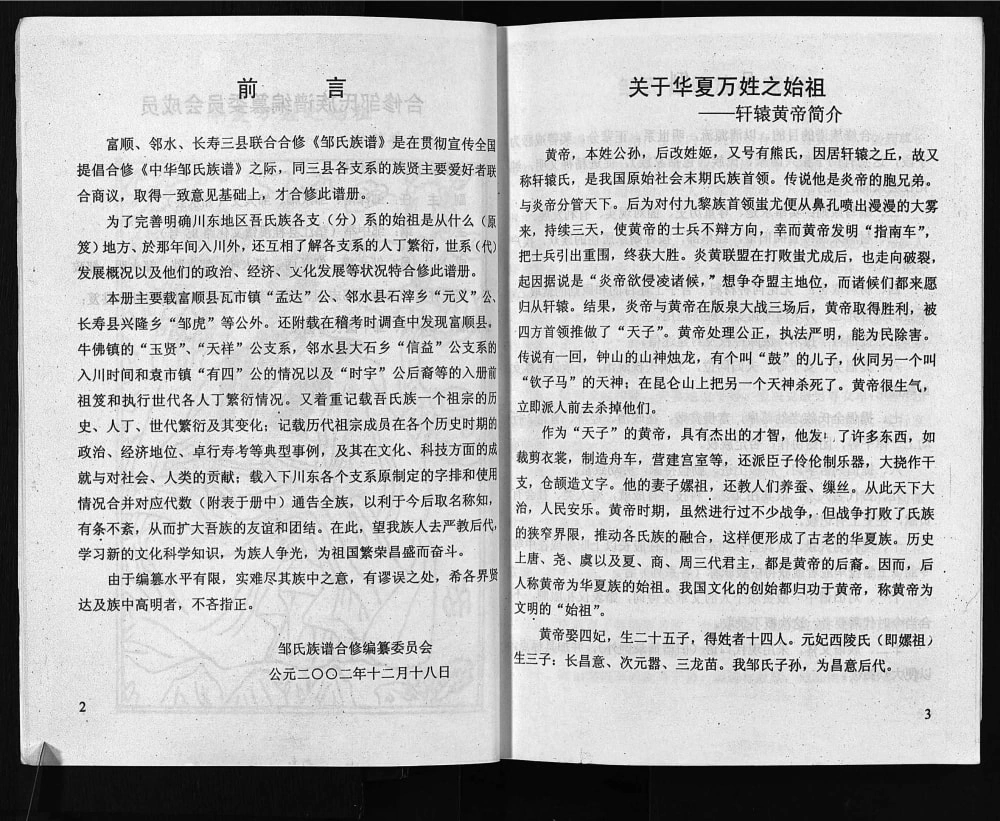 前 言
富顺、邻水、长寿三县联合合修《邹氏族谱》是在贯彻宣传全国
提倡合修《中华邹氏族谱》之际，同三县各支系的族贤主要爱好者联
合商议，取得一致意见基础上，才合修此谱册。
为了完善明确川东地区吾氏族各支（分）系的始祖是从什么（原
笈）地方、於那年间入川外，还互相了解各支系的人丁繁衍，世系（代）
发展概况以及他们的政治、经济、文化发展等状况特合修此谱册。
本册主要载富顺县瓦市镇“孟达”公、邻水县石滓乡“元义”公、
长寿县兴隆乡“邹虎”等公外。还附载在稽考时调查中发现富顺县，
牛佛镇的“玉贤”、“天祥”公支系，邻水县大石乡“信益”公支系的
入川时间和袁市镇“有四”公的情况以及“时宇”公后裔等的入册前
祖笈和执行世代各人丁繁衍情况。又着重记载吾氏族一个祖宗的历
史、人丁、世代繁衍及其变化；记载历代祖宗成员在各个历史时期的
政治、经济地位、卓行寿考等典型事例，及其在文化、科技方面的成
就与对社会、人类的贡献；载入下川东各个支系原制定的字排和使用
情况合并对应代数（附表于册中）通告全族，以利于今后取名称知，
有条不紊，从而扩大吾族的友谊和团结。在此，望我族人去严教后代，
学习新的文化科学知识，为族人争光，为祖国繁荣昌盛而奋斗。
由于编纂水平有限，实难尽其族中之意，有谬误之处，希各界贤
达及族中高明者，不吝指正。
邹氏族谱合修编纂委员会
公元二〇〇二年十二月十八日
2
关于华夏万姓之始祖
——轩辕黄帝简介
黄帝，本姓公孙，后改姓姬，又号有熊氏，因居轩辕之丘，故又
称轩辕氏，是我国原始社会末期氏族首领。传说他是炎帝的胞兄弟。
与炎帝分管天下。后为对付九黎族首领蚩尤便从鼻孔喷出漫漫的大雾
来，持续三天，使黄帝的士兵不辩方向，幸而黄帝发明“指南车”，
把士兵引出重围，终获大胜。炎黄联盟在打败蚩尤成后，也走向破裂，
起因据说是“炎帝欲侵凌诸候，”想争夺盟主地位，而诸候们都来愿
归从轩辕。结果，炎帝与黄帝在版泉大战三场后，黄帝取得胜利，被
四方首领推做了“天子”。黄帝处理公正，执法严明，能为民除害。
传说有一回，钟山的山神烛龙，有个叫“鼓”的儿子，伙同另一个叫
“钦子马”的天神；在昆仑山上把另一个天神杀死了。黄帝很生气，
立即派人前去杀掉他们。
作为“天子”的黄帝，具有杰出的才智，他发 了许多东西，如
裁剪衣裳，制造舟车，营建宫室等，还派臣子伶伦制乐器，大挠作干
支，仓颉造文字。他的妻子嫘祖，还教人们养蚕、缫丝。从此天下大
治，人民安乐。黄帝时期，虽然进行过不少战争，但战争打败了氏族
的狭窄界限，推动各氏族的融合，这样便形成了古老的华夏族。历史
上唐、尧、虞以及夏、商、周三代君主，都是黄帝的后裔。因而，后
人称黄帝为华夏族的始祖。我国文化的创始都归功于黄帝，称黄帝为
文明的“始祖”。
黄帝娶四妃，生二十五子，得姓者十四人。元妃西陵氏（即嫘祖）
生三子：长昌意、次元嚣、三龙苗。我邹氏子孙，为昌意后代。
3